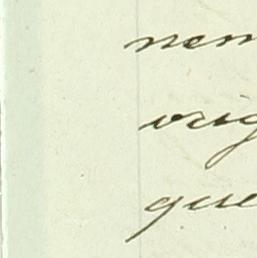 nem
orig
que